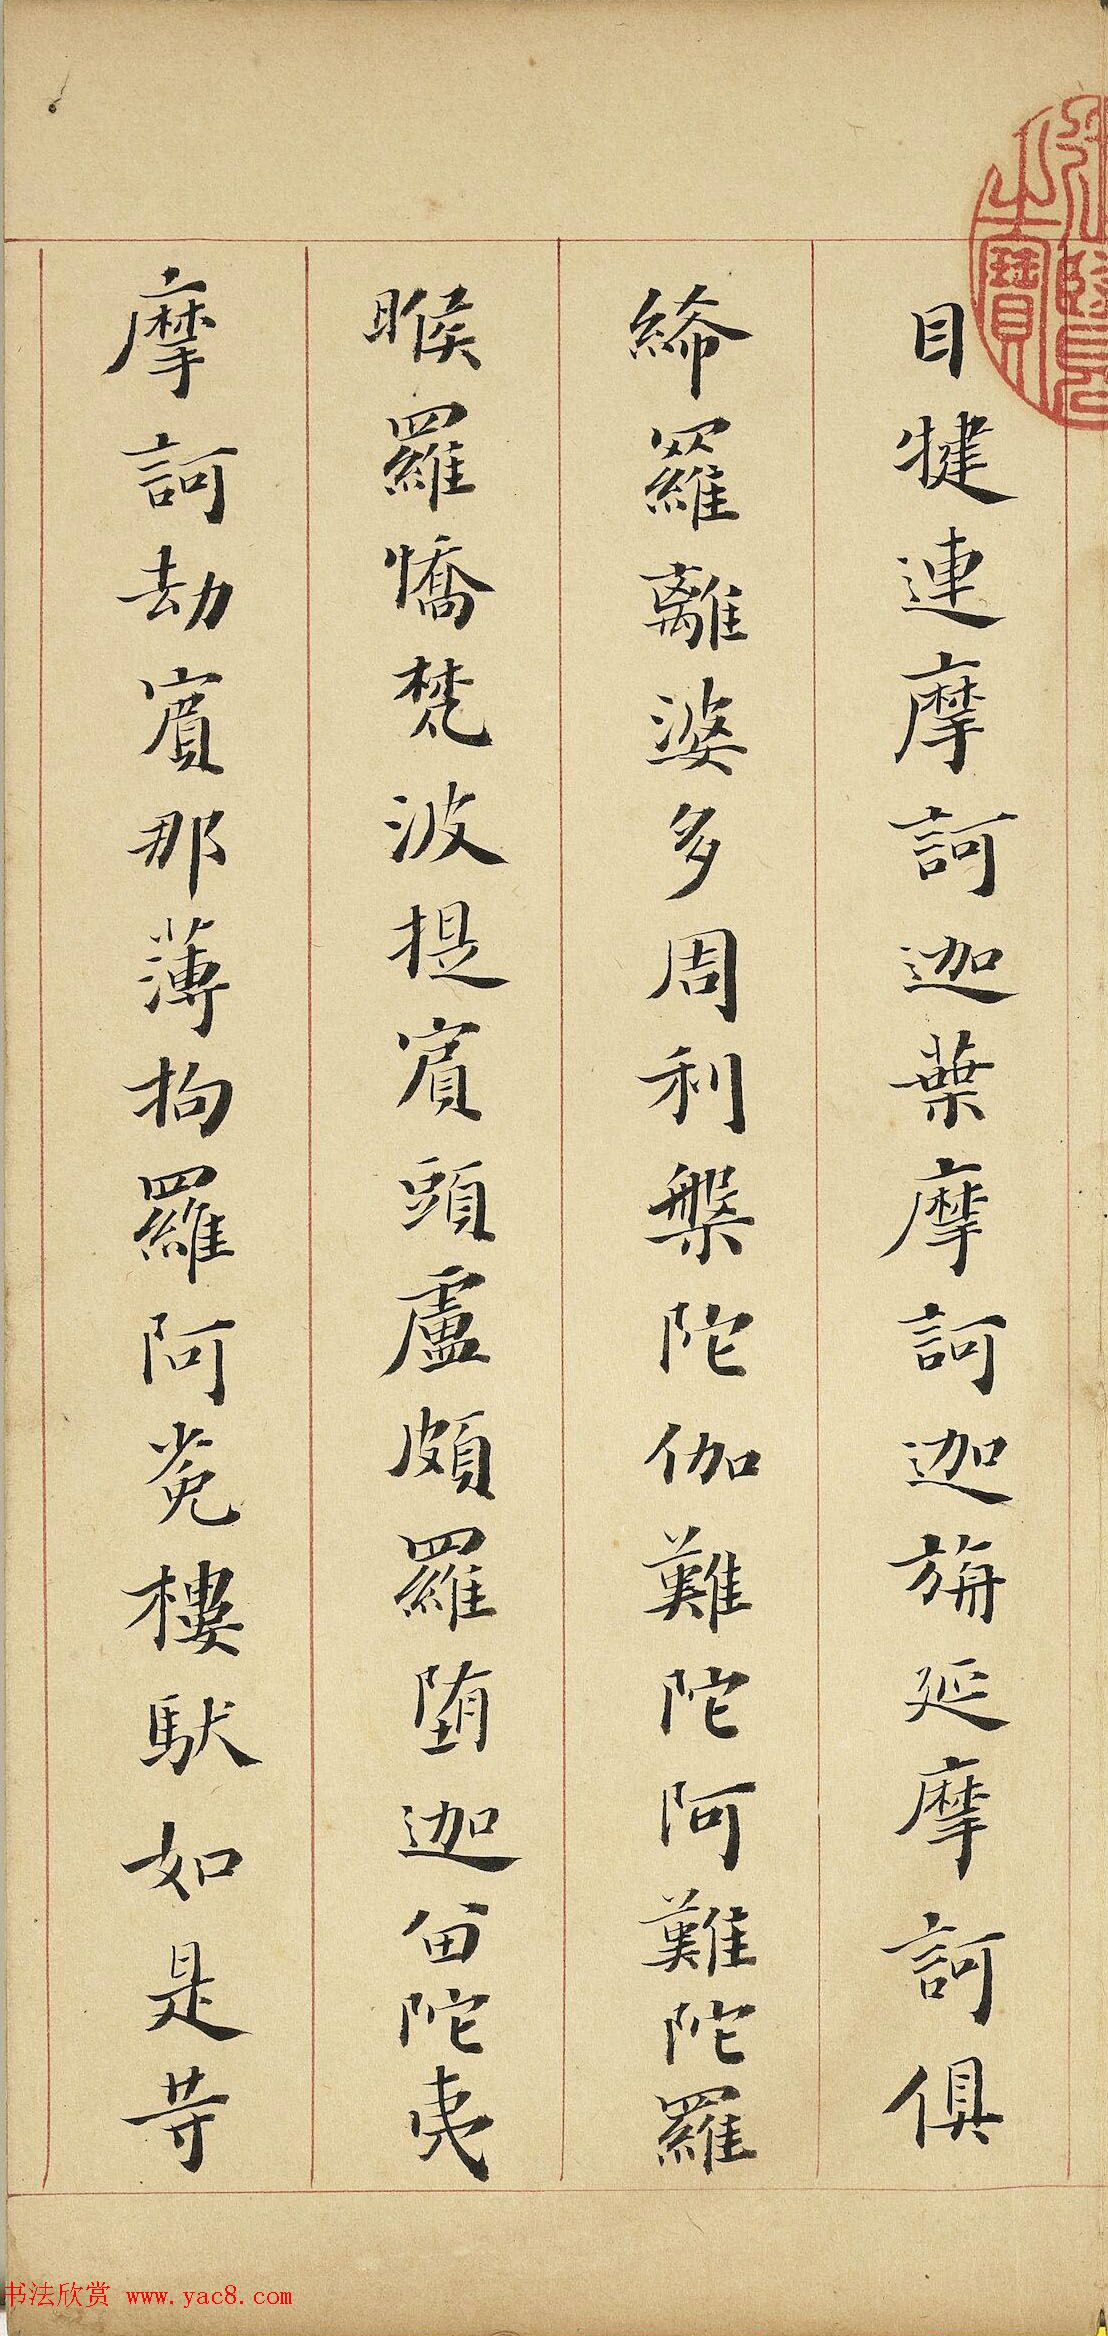 目犍連摩訶迦葉摩訶迦旃延摩訶俱
絺羅離婆多周利槃陀伽難陀阿難陀羅
睺羅憍梵波提賓頭盧頗羅墮迦留陀夷
摩訶劫賓那薄拘羅阿㝹樓馱如是等
书法欣赏 www.yac8.com